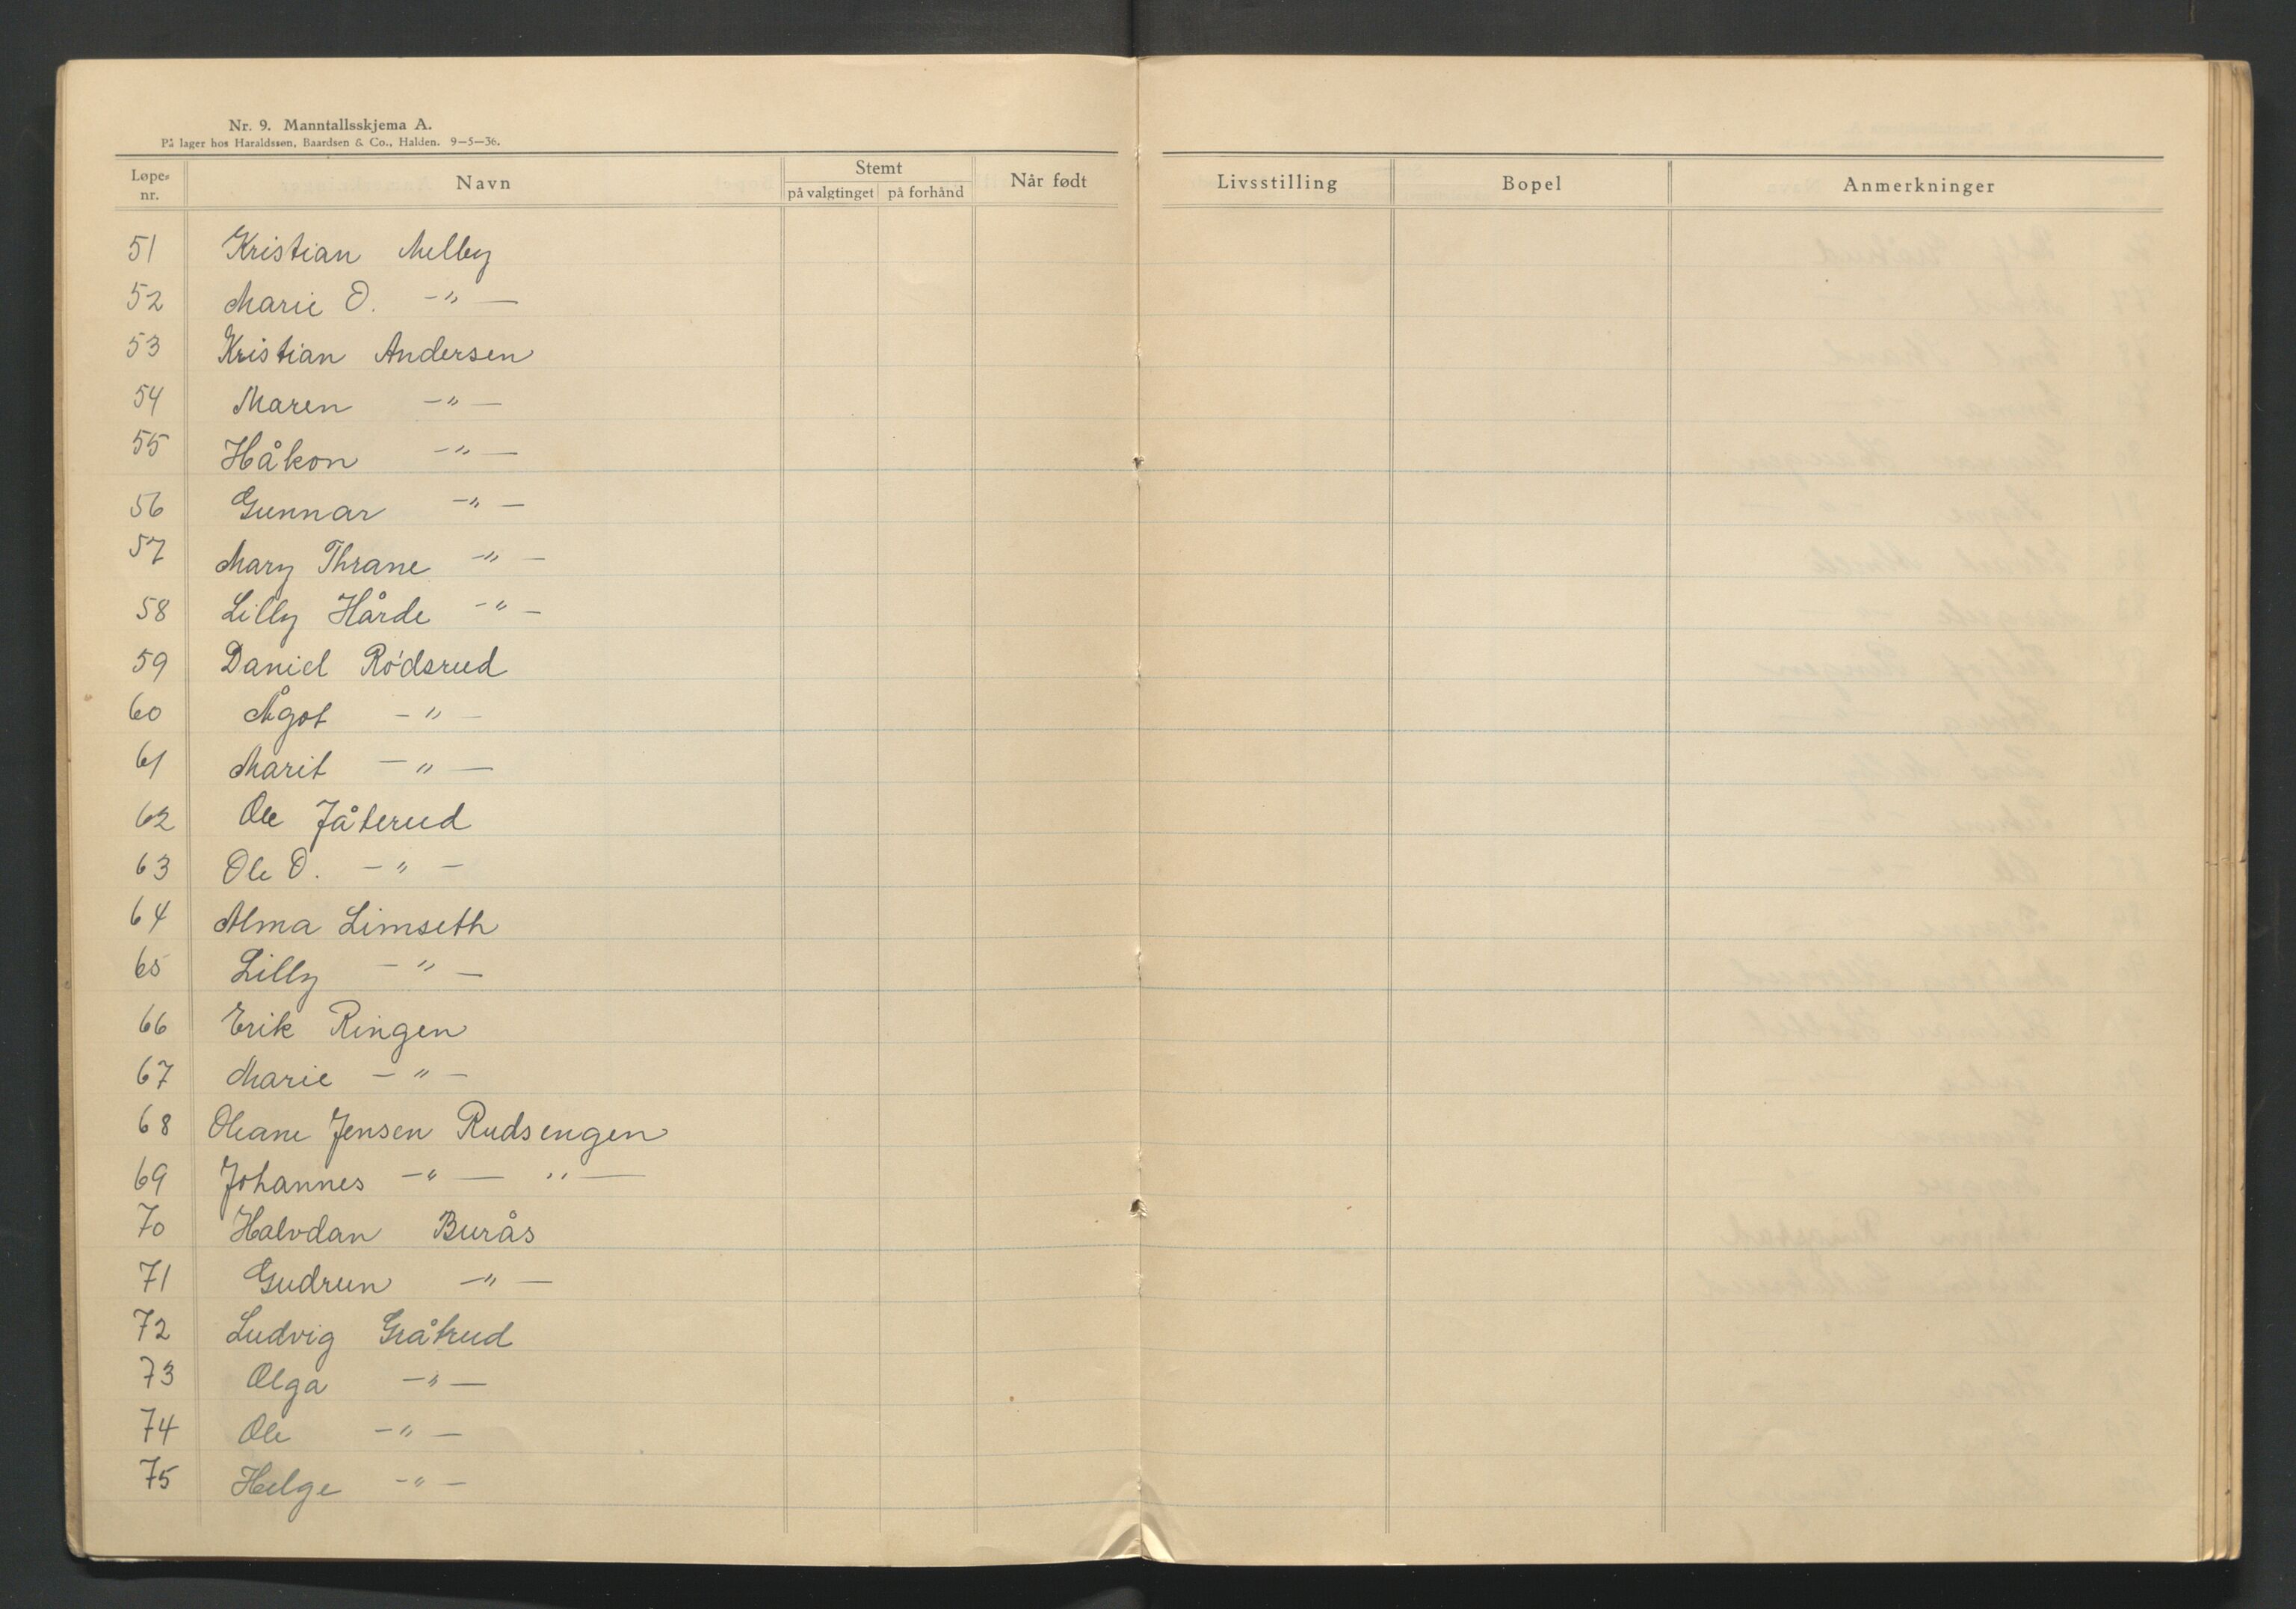 Nr. 9. Manntallsskjema A.
På lager hos Haraldssøn, Baardsen & Co., Halden. 9—5—36.
Løpe- nr. Navn Stemt på valgtinget på forhånd Når født Livsstilling Bopel Anmerkninger
51 Kristian Melby
52 Marie O. -"-
53 Kristian Andersen
54 Maren -"-
55 Håkon -"-
56 Gunnar -"-
57 Mary Thrane -"-
58 Lilly Hårde -"-
59 Daniel Rødsrud
60 Ågot -"-
61 Marit -"-
62 Ole Jåterud
63 Ole O. -"-
64 Alma Limseth
65 Lilly -"-
66 Erik Ringen
67 Marie -"-
68 Oleane Jensen Rudsengen
69 Johannes -"- "-
70 Halvdan Burås
71 Gudrun -"-
72 Ludvig Gråkrud
73 Olga -"-
74 Ole -"-
75 Helge -"-